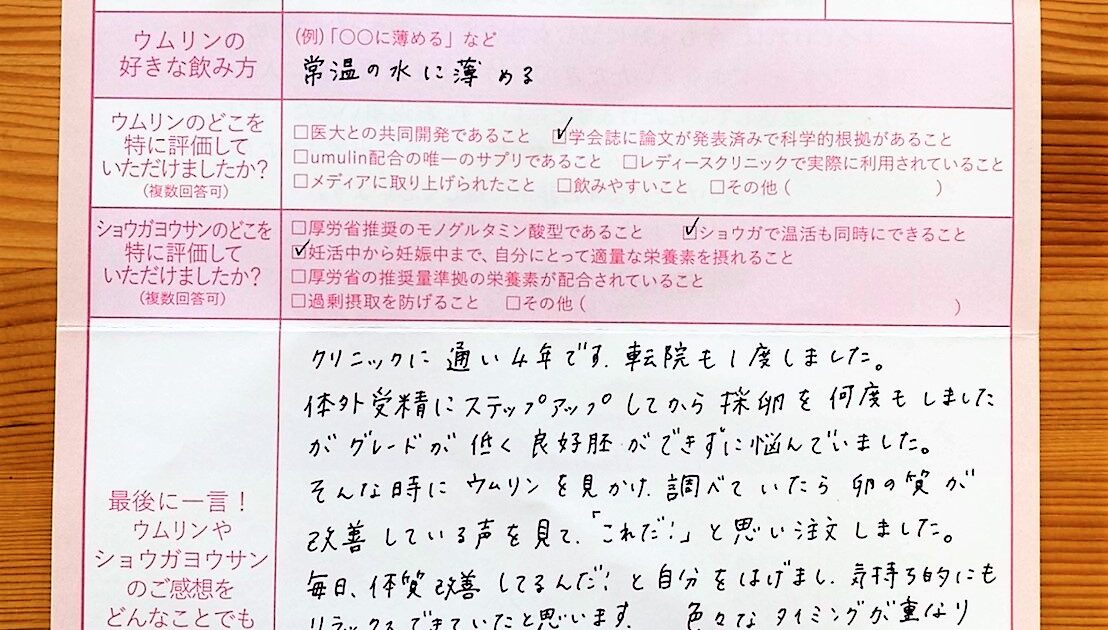 ウムリンの
好きな飲み方
(例)「〇〇に薄める」など
常温の水に薄める
ウムリンのどこを
特に評価して
いただけましたか?
(複数回答可)
□医大との共同開発であること ☑学会誌に論文が発表済みで科学的根拠があること
□umulin配合の唯一のサプリであること □レディースクリニックで実際に利用されていること
□メディアに取り上げられたこと □飲みやすいこと □その他( )
ショウガヨウサンのどこを
特に評価して
いただけましたか?
(複数回答可)
□厚労省推奨のモノグルタミン酸型であること ☑ショウガで温活も同時にできること
☑妊活中から妊娠中まで、自分にとって適量な栄養素を摂れること
□厚労省の推奨量準拠の栄養素が配合されていること
□過剰摂取を防げること □その他( )
最後に一言!
ウムリンや
ショウガヨウサン
のご感想を
どんなことでも
クリニックに通い4年です。転院も1度しました。
体外受精にステップアップしてから採卵を何度もしました
がグレードが低く良好胚ができずに悩んでいました。
そんな時にウムリンを見かけ、調べていたら卵の質が
改善している声を見て、「これだ!」と思い注文しました。
毎日、体質改善してるんだ!と自分をはげまし、気持ち的にも
リラックスできていたと思います。 色々なタイミングが重なり